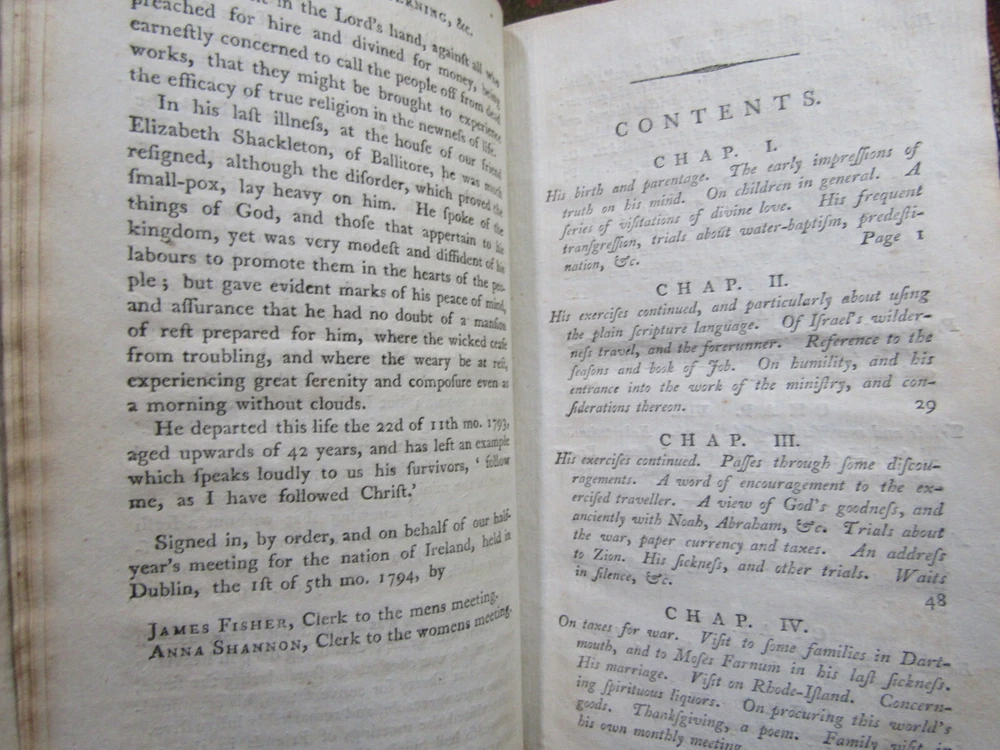 ERNING, &c.
in the Lord's hand, againſt all who
preached for hire and divined for money, being
earneſtly concerned to call the people off from dead
works, that they might be brought to experience
the efficacy of true religion in the newneſs of life.
In his laſt illneſs, at the houſe of our friend
Elizabeth Shackleton, of Ballitore, he was much
reſigned, although the diſorder, which proved the
ſmall-pox, lay heavy on him. He ſpoke of the
things of God, and thoſe that appertain to his
kingdom, yet was very modeſt and diffident of his
labours to promote them in the hearts of the peo-
ple; but gave evident marks of his peace of mind,
and aſſurance that he had no doubt of a manſion
of reſt prepared for him, where the wicked ceaſe
from troubling, and where the weary be at reſt,
experiencing great ſerenity and compoſure even as
a morning without clouds.
He departed this life the 22d of 11th mo. 1793,
aged upwards of 42 years, and has left an example
which ſpeaks loudly to us his ſurvivors, ‘ follow
me, as I have followed Chriſt.’
Signed in, by order, and on behalf of our half-
year's meeting for the nation of Ireland, held in
Dublin, the 1ſt of 5th mo. 1794, by
JAMES FISHER, Clerk to the mens meeting.
ANNA SHANNON, Clerk to the womens meeting.
CONTENTS.
CHAP. I.
His birth and parentage. The early impreſſions of
truth on his mind. On children in general. A
ſeries of viſitations of divine love. His frequent
tranſgreſſion, trials about water-baptiſm, predeſti-
nation, &c. Page 1
CHAP. II.
His exerciſes continued, and particularly about uſing
the plain ſcripture language. Of Iſrael's wilder-
neſs travel, and the forerunner. Reference to the
ſeaſons and book of Job. On humility, and his
entrance into the work of the miniſtry, and con-
ſiderations thereon. 29
CHAP. III.
His exerciſes continued. Paſſes through ſome diſcou-
ragements. A word of encouragement to the ex-
erciſed traveller. A view of God's goodneſs, and
anciently with Noah, Abraham, &c. Trials about
the war, paper currency and taxes. An addreſs
to Zion. His ſickneſs, and other trials. Waits
in ſilence, &c. 48
CHAP. IV.
On taxes for war. Viſit to ſome families in Dart-
mouth, and to Moſes Farnum in his laſt ſickneſs.
His marriage. Viſit on Rhode-Iſland. Concern-
ing ſpirituous liquors. On procuring this world's
goods. Thankſgiving, a poem. Family viſit in
his own monthly meeting.